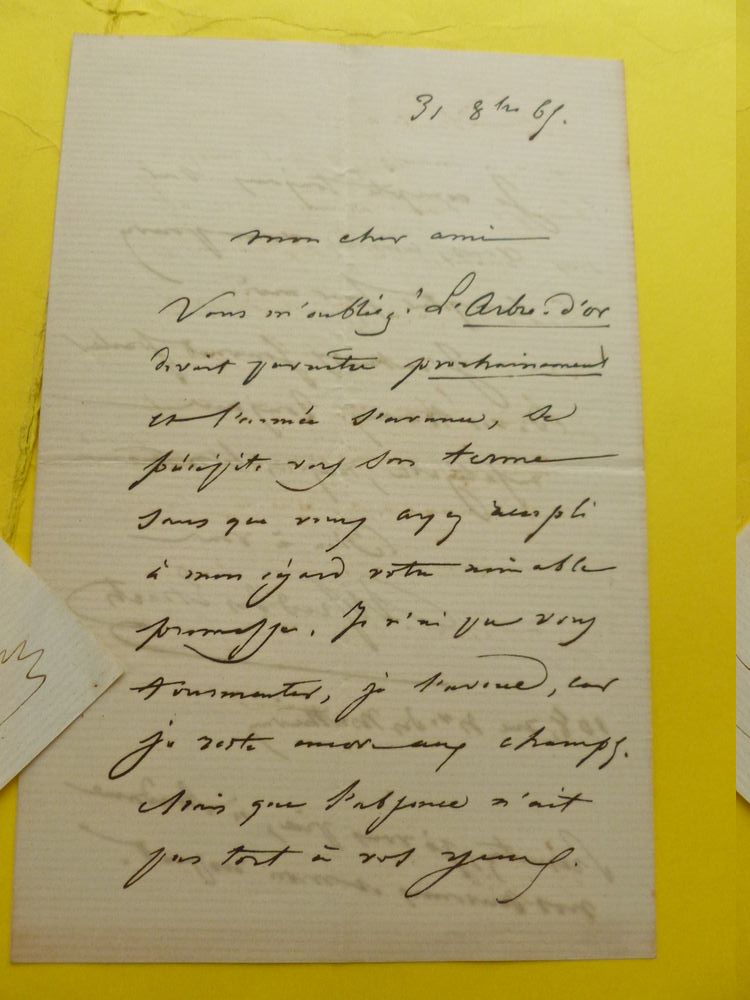 31 8bre 65.
mon cher ami
Vous m'oubliez! L'Arbre d'or
devait paraître prochainement
et l'année s'avance, se
précipite vers son terme
sans que vous ayez accompli
à mon égard votre aimable
promesse. Je n'ai pu vous
tourmenter, je l'avoue, car
je reste encore aux champs.
Mais que l'absence n'ait
pas tort à vos yeux.